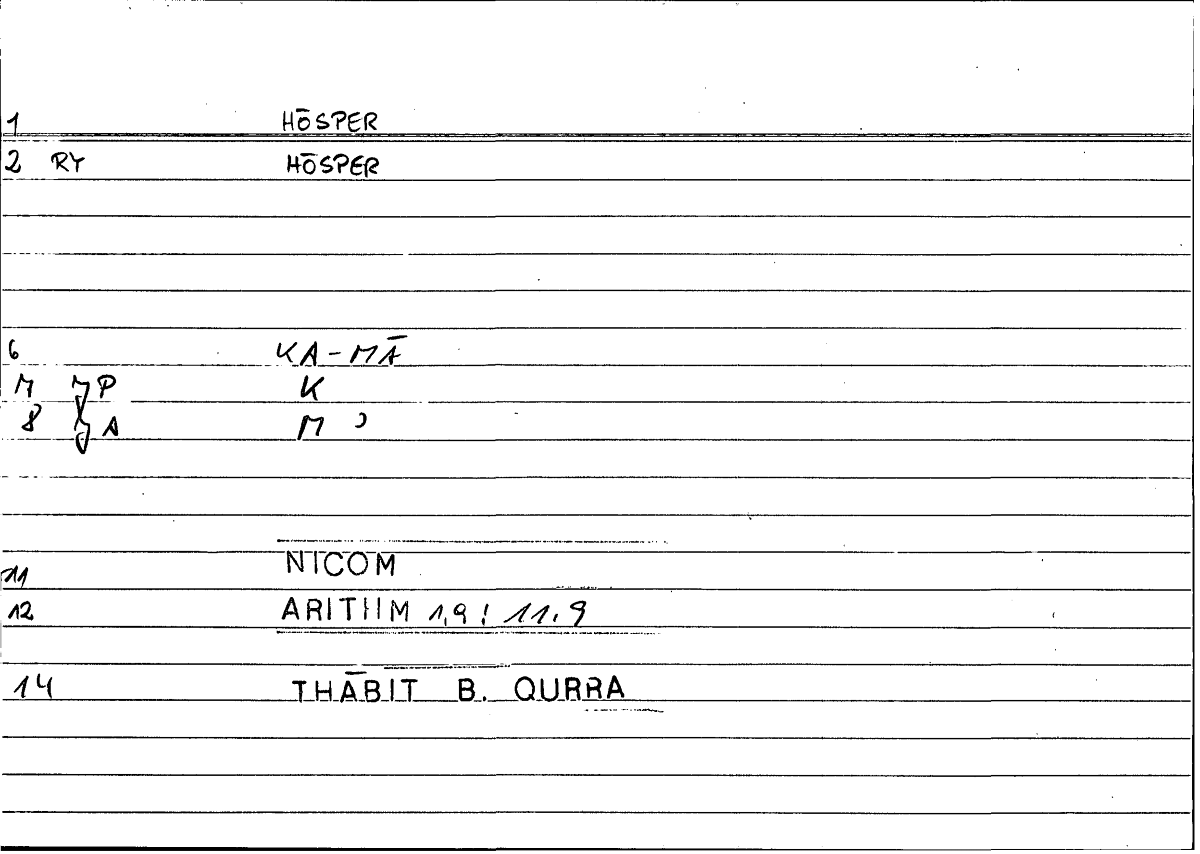 1 HŌSPER
2 RY HŌSPER
6 KA-MĀ
M P K
8 A M ʾ
11 NICOM
12 ARITHM 1,9 ; 11.9
14 THĀBIT B. QURRA